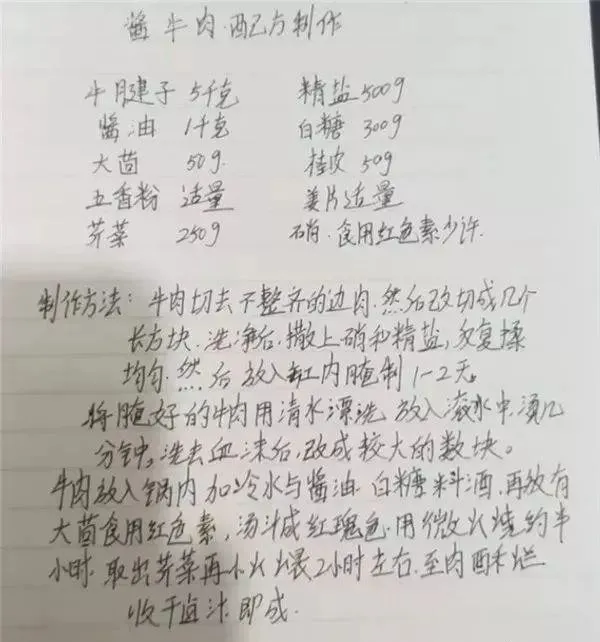 酱牛肉.配方制作
牛腱子 5千克 精盐500g
酱油 1千克 白糖 300g
大茴 50g. 桂皮 50g
五香粉 适量 姜片适量
芹菜 250g 硝.食用红色素少许.
制作方法: 牛肉切去不整齐的边肉.然后改切成几个
长方块.洗净后.撒上硝和精盐,反复揉
均匀.然后放入缸内腌制1-2天。
将腌好的牛肉用清水漂洗.放入滚水中.烫几
分钟,洗去血沫后,改成较大的数块。
牛肉放入锅内加冷水与酱油.白糖料酒.再放有
大茴食用红色素,汤汁成红瑰色.用微火烧约半
小时.取出芹菜再小火煨2小时左右.至肉酥烂
收干卤汁即成.